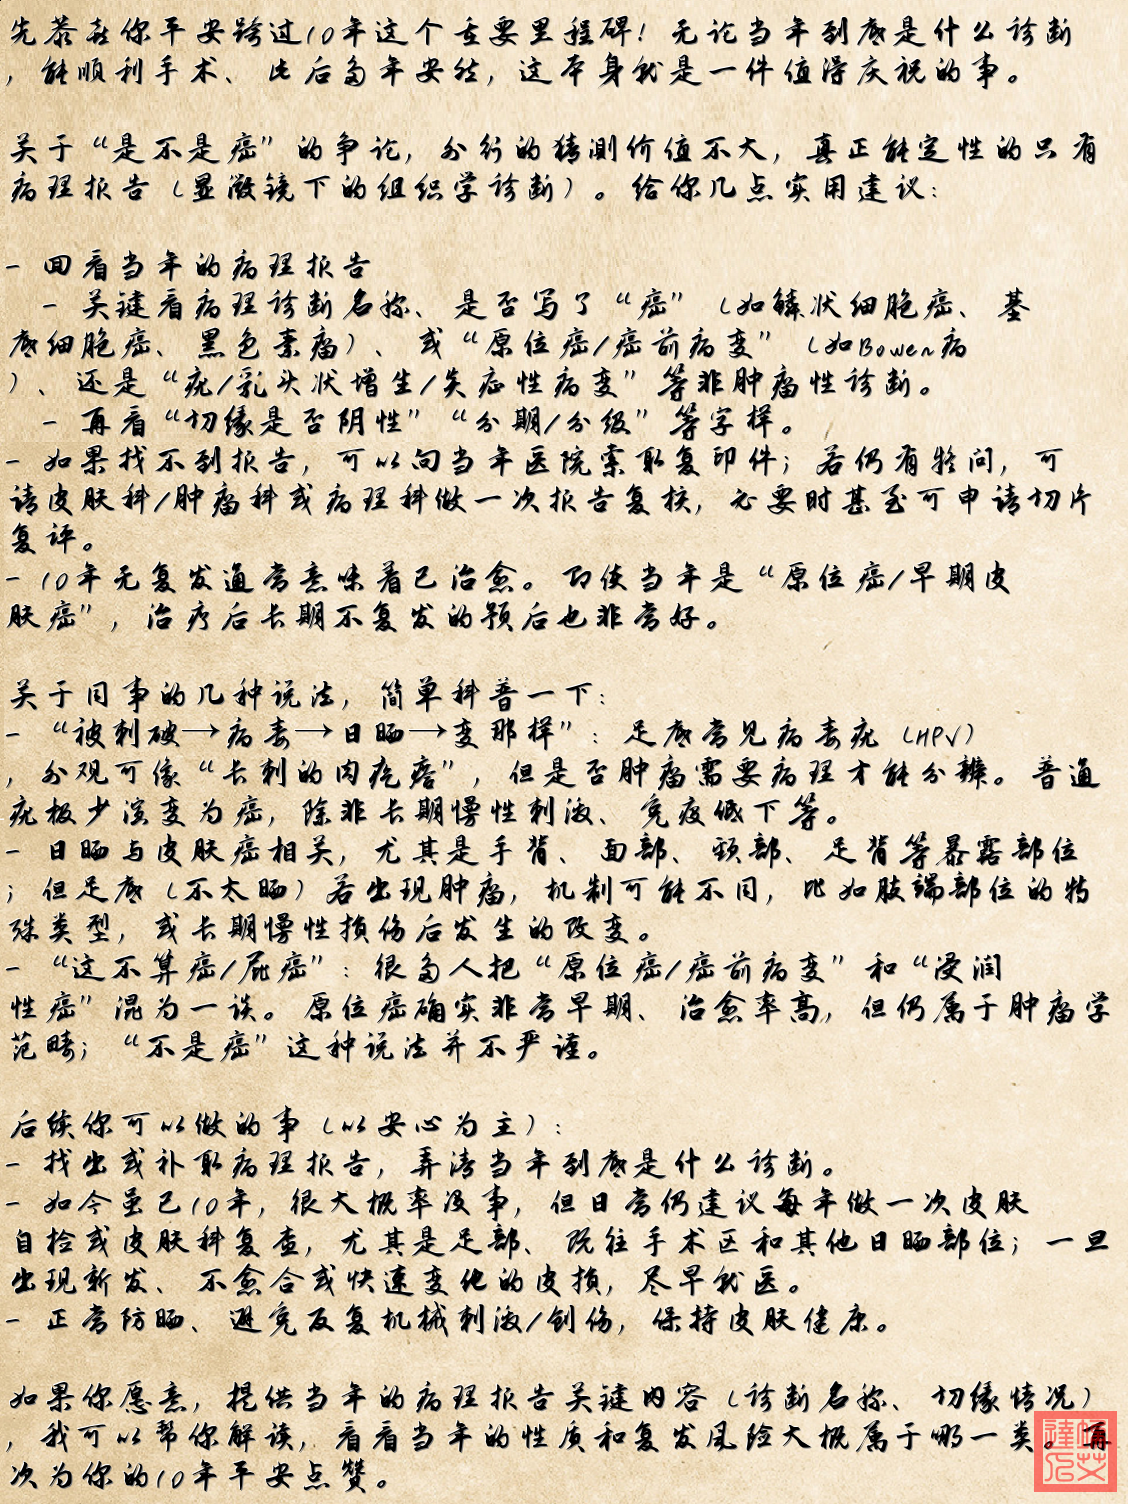 先恭喜你平安跨过10年这个重要里程碑！无论当年到底是什么诊断
，能顺利手术、此后多年安然，这本身就是一件值得庆祝的事。
关于“是不是癌”的争论，外行的猜测价值不大，真正能定性的只有
病理报告（显微镜下的组织学诊断）。给你几点实用建议：
- 回看当年的病理报告
- 关键看病理诊断名称、是否写了“癌”（如鳞状细胞癌、基
底细胞癌、黑色素瘤）、或“原位癌/癌前病变”（如Bowen病
）、还是“疣/乳头状增生/炎症性病变”等非肿瘤性诊断。
- 再看“切缘是否阴性”“分期/分级”等字样。
- 如果找不到报告，可以向当年医院索取复印件；若仍有疑问，可
请皮肤科/肿瘤科或病理科做一次报告复核，必要时甚至可申请切片
复评。
- 10年无复发通常意味着已治愈。即使当年是“原位癌/早期皮
肤癌”，治疗后长期不复发的预后也非常好。
关于同事的几种说法，简单科普一下：
- “被刺破→病毒→日晒→变那样”：足底常见病毒疣（HPV）
，外观可像“长刺的肉疙瘩”，但是否肿瘤需要病理才能分辨。普通
疣极少演变为癌，除非长期慢性刺激、免疫低下等。
- 日晒与皮肤癌相关，尤其是手背、面部、颈部、足背等暴露部位
；但足底（不太晒）若出现肿瘤，机制可能不同，比如肢端部位的特
殊类型，或长期慢性损伤后发生的改变。
- “这不算癌/屁癌”：很多人把“原位癌/癌前病变”和“浸润
性癌”混为一谈。原位癌确实非常早期、治愈率高，但仍属于肿瘤学
范畴；“不是癌”这种说法并不严谨。
后续你可以做的事（以安心为主）：
- 找出或补取病理报告，弄清当年到底是什么诊断。
- 如今虽已10年，很大概率没事，但日常仍建议每年做一次皮肤
自检或皮肤科复查，尤其是足部、既往手术区和其他日晒部位；一旦
出现新发、不愈合或快速变化的皮损，尽早就医。
- 正常防晒、避免反复机械刺激/创伤，保持皮肤健康。
如果你愿意，提供当年的病理报告关键内容（诊断名称、切缘情况）
，我可以帮你解读，看看当年的性质和复发风险大概属于哪一类。再
次为你的10年平安点赞。